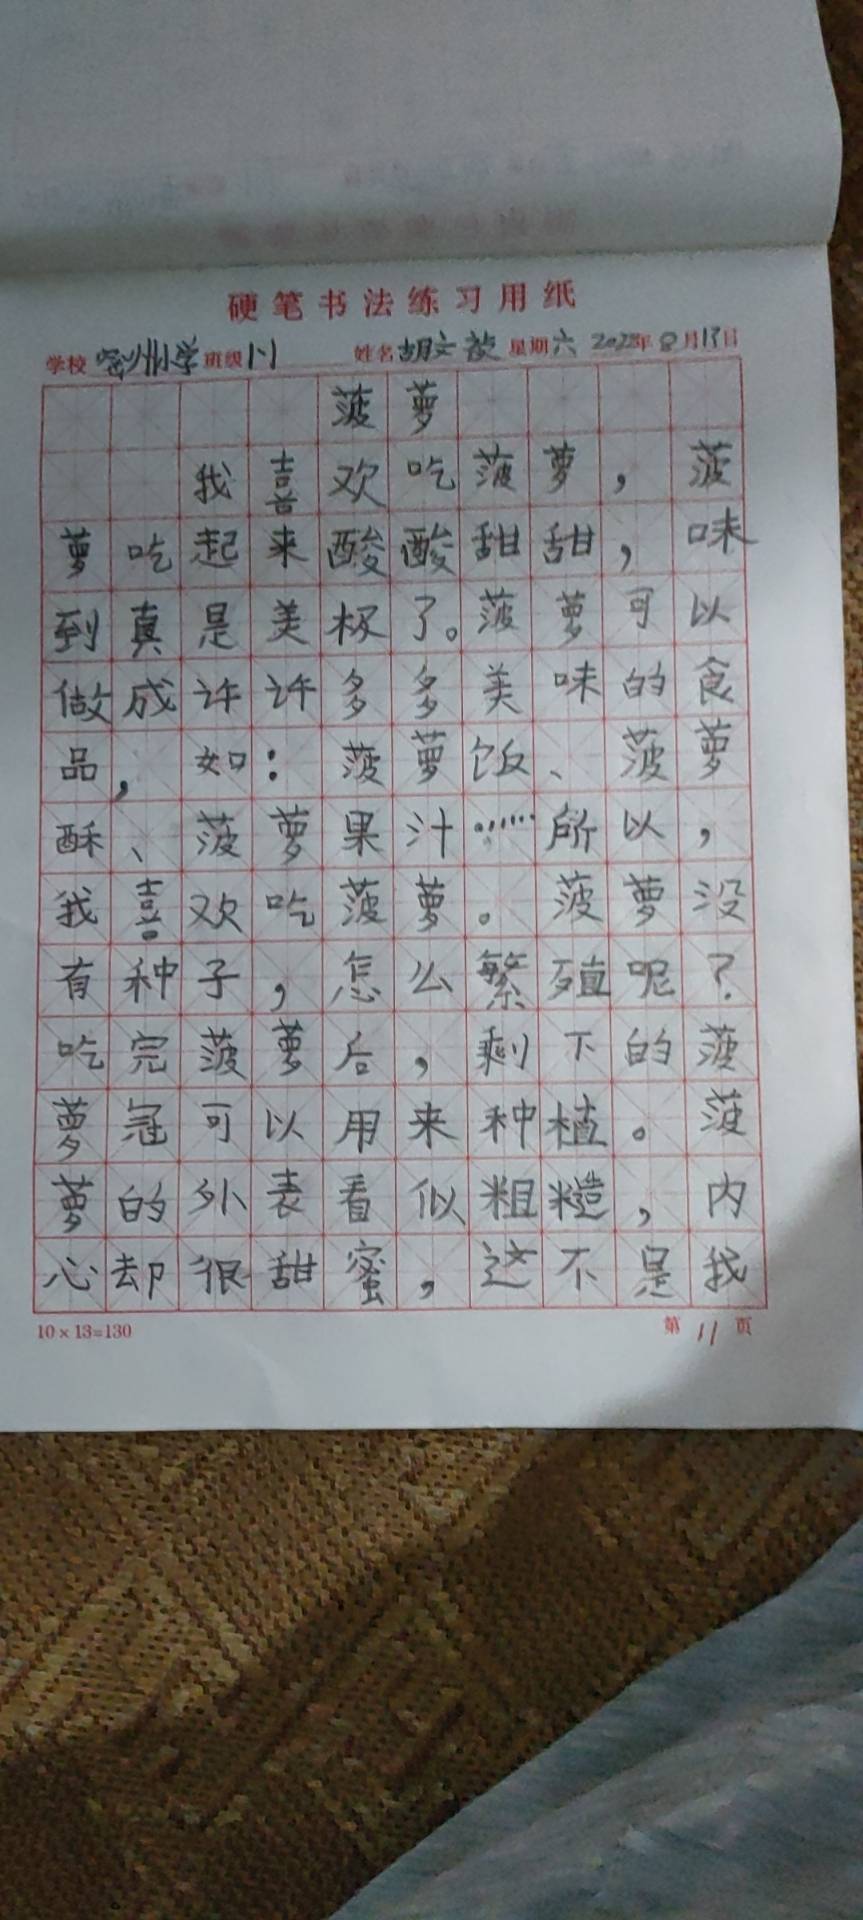 硬笔书法练习用纸
学校 密州小学 班级 1·1 姓名 胡文歆 星期六 2022年8月13日
菠萝
我喜欢吃菠萝，菠
萝吃起来酸酸甜甜，味
到真是美极了。菠萝可以
做成许许多多美味的食
品，如：菠萝饭、菠萝
酥、菠萝果汁……所以，
我喜欢吃菠萝。菠萝没
有种子，怎么繁殖呢？
吃完菠萝后，剩下的菠
萝冠可以用来种植。菠
萝的外表看似粗糙，内
心却很甜蜜，这不是我
10×13=130 第 11 页